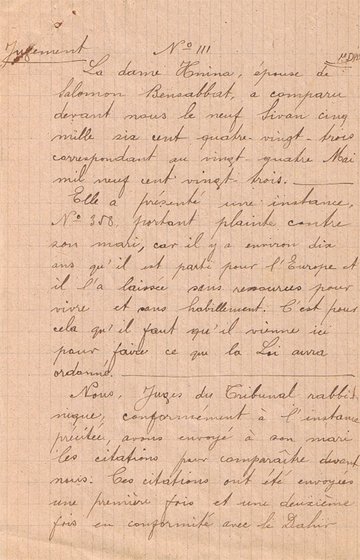 Jugement
Nº 111
La dame Hnina, épouse de
Salomon Bensabbat, a comparu
devant nous le neuf Sivan cinq
mille six cent quatre-vingt-trois
correspondant au vingt-quatre Mai
mil neuf cent vingt-trois.
Elle a présenté une instance,
Nº 358 portant plainte contre
son mari, car il y a environ dix
ans qu'il est parti pour l'Europe et
il l'a laissée sans ressources pour
vivre et sans habillement. C'est pour
cela qu'il faut qu'il vienne ici
pour faire ce que la Loi aura
ordonné.
Nous, Juges du Tribunal rabbi-
nique, conformément à l'instance
précitée, avons envoyé à son mari
les citations pour comparaître devant
nous. Ces citations ont été envoyées
une première fois et une deuxième
fois en conformité avec le Dahir